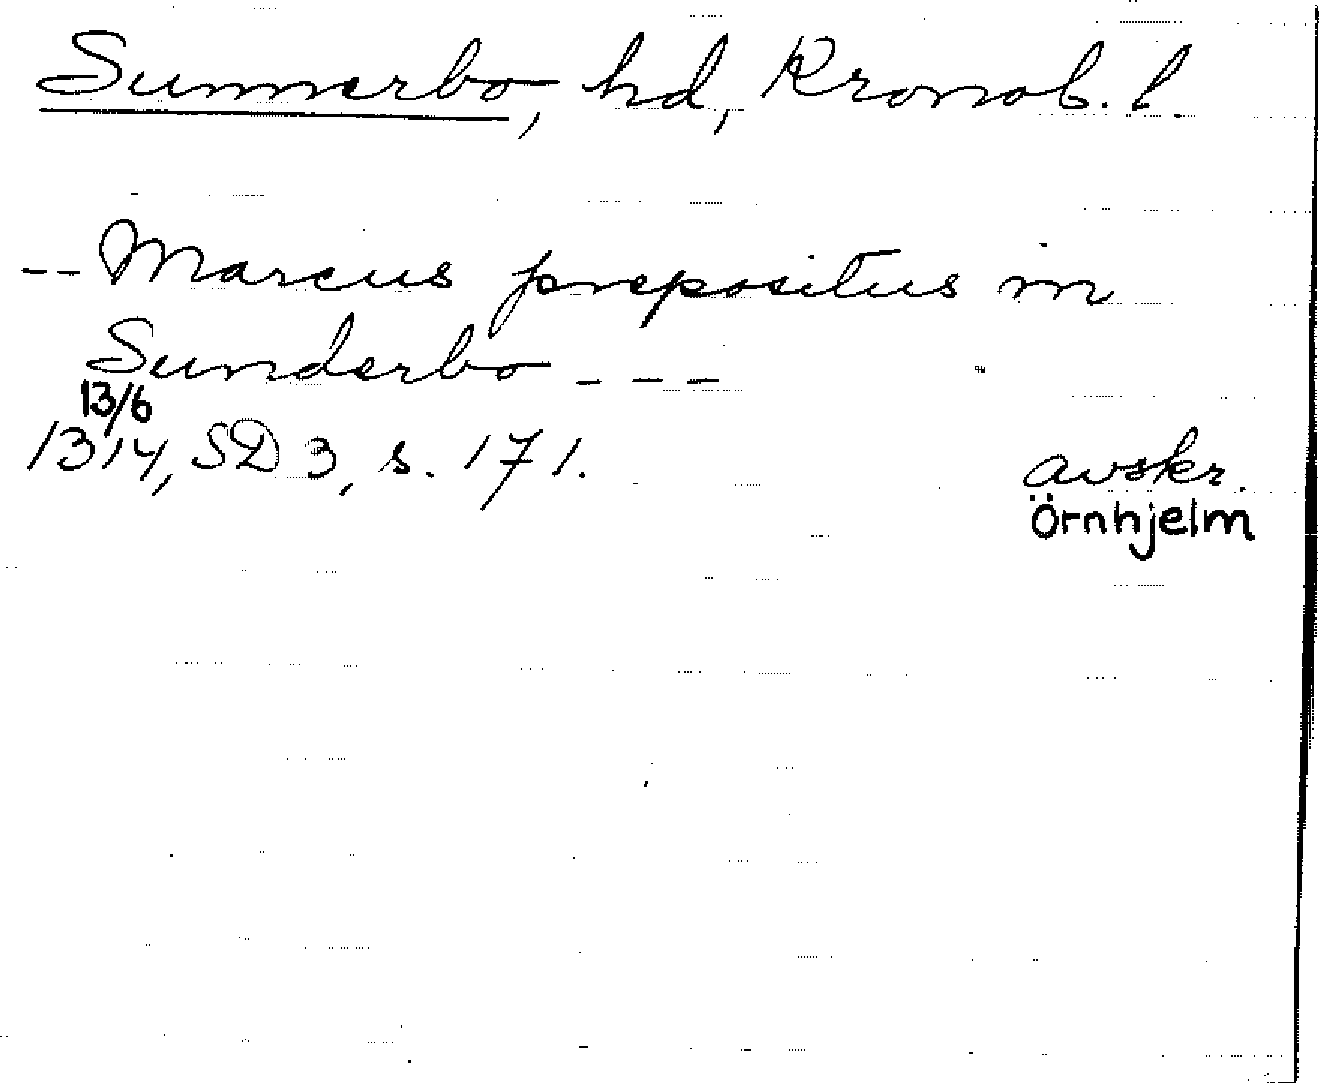 Sunnerbo, hd, Kronob. l
-- Marcus prepositus in
Sunderbo - - -
13/6
1314, SD 3, s. 171.
avskr.
Örnhjelm